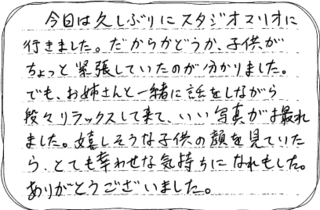 今日は久しぶりにスタジオマリオに
行きました。だからかどうか、子供が
ちょっと緊張していたのが分かりました。
でも、お姉さんと一緒に話をしながら
段々リラックスして来て、いい写真がお撮れ
ました。嬉しそうな子供の顔を見ていた
ら、とても幸わせな気持ちになれもした。
ありがとうございました。